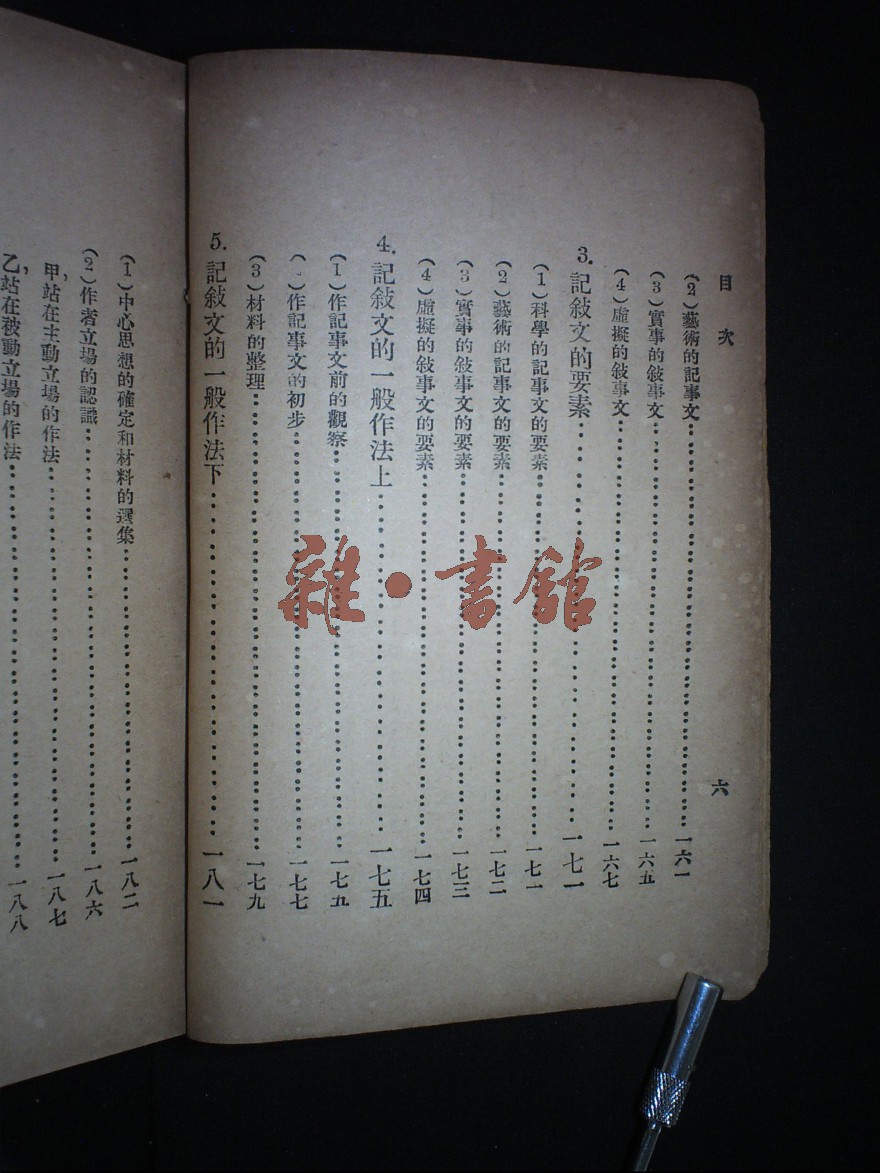 目次
六
(2)藝術的記事文……一六一
(3)實事的敍事文……一六五
(4)虛擬的敍事文……一六七
3.記敍文的要素……一七一
(1)科學的記事文的要素……一七一
(2)藝術的記事文的要素……一七二
(3)實事的敍事文的要素……一七三
(4)虛擬的敍事文的要素……一七四
4.記敍文的一般作法上……一七五
(1)作記事文前的觀察……一七五
( )作記事文的初步……一七七
(3)材料的整理……一七九
5.記敍文的一般作法下……一八一
(1)中心思想的確定和材料的選集……一八二
(2)作者立場的認識……一八六
甲,站在主動立場的作法……一八七
乙,站在被動立場的作法……一八八
雜·書館